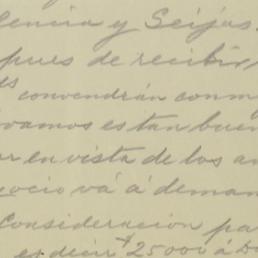 encia y Seijas.
pues de recibir,
es convendrán conm
vamos es tan buen
ar en vista de los an
ocio vá á deman
Consideración pa
es decir $25000 á